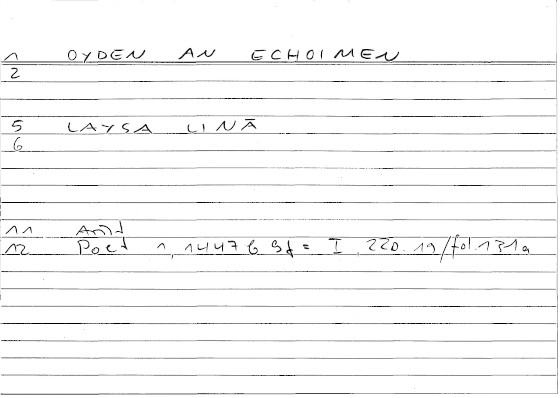 1 OYDEN AN ECHOIMEN
2
5 LAYSA LINĀ
6
11
12 Poet 1, 1447 b 9f = I 220.19/fol.131a